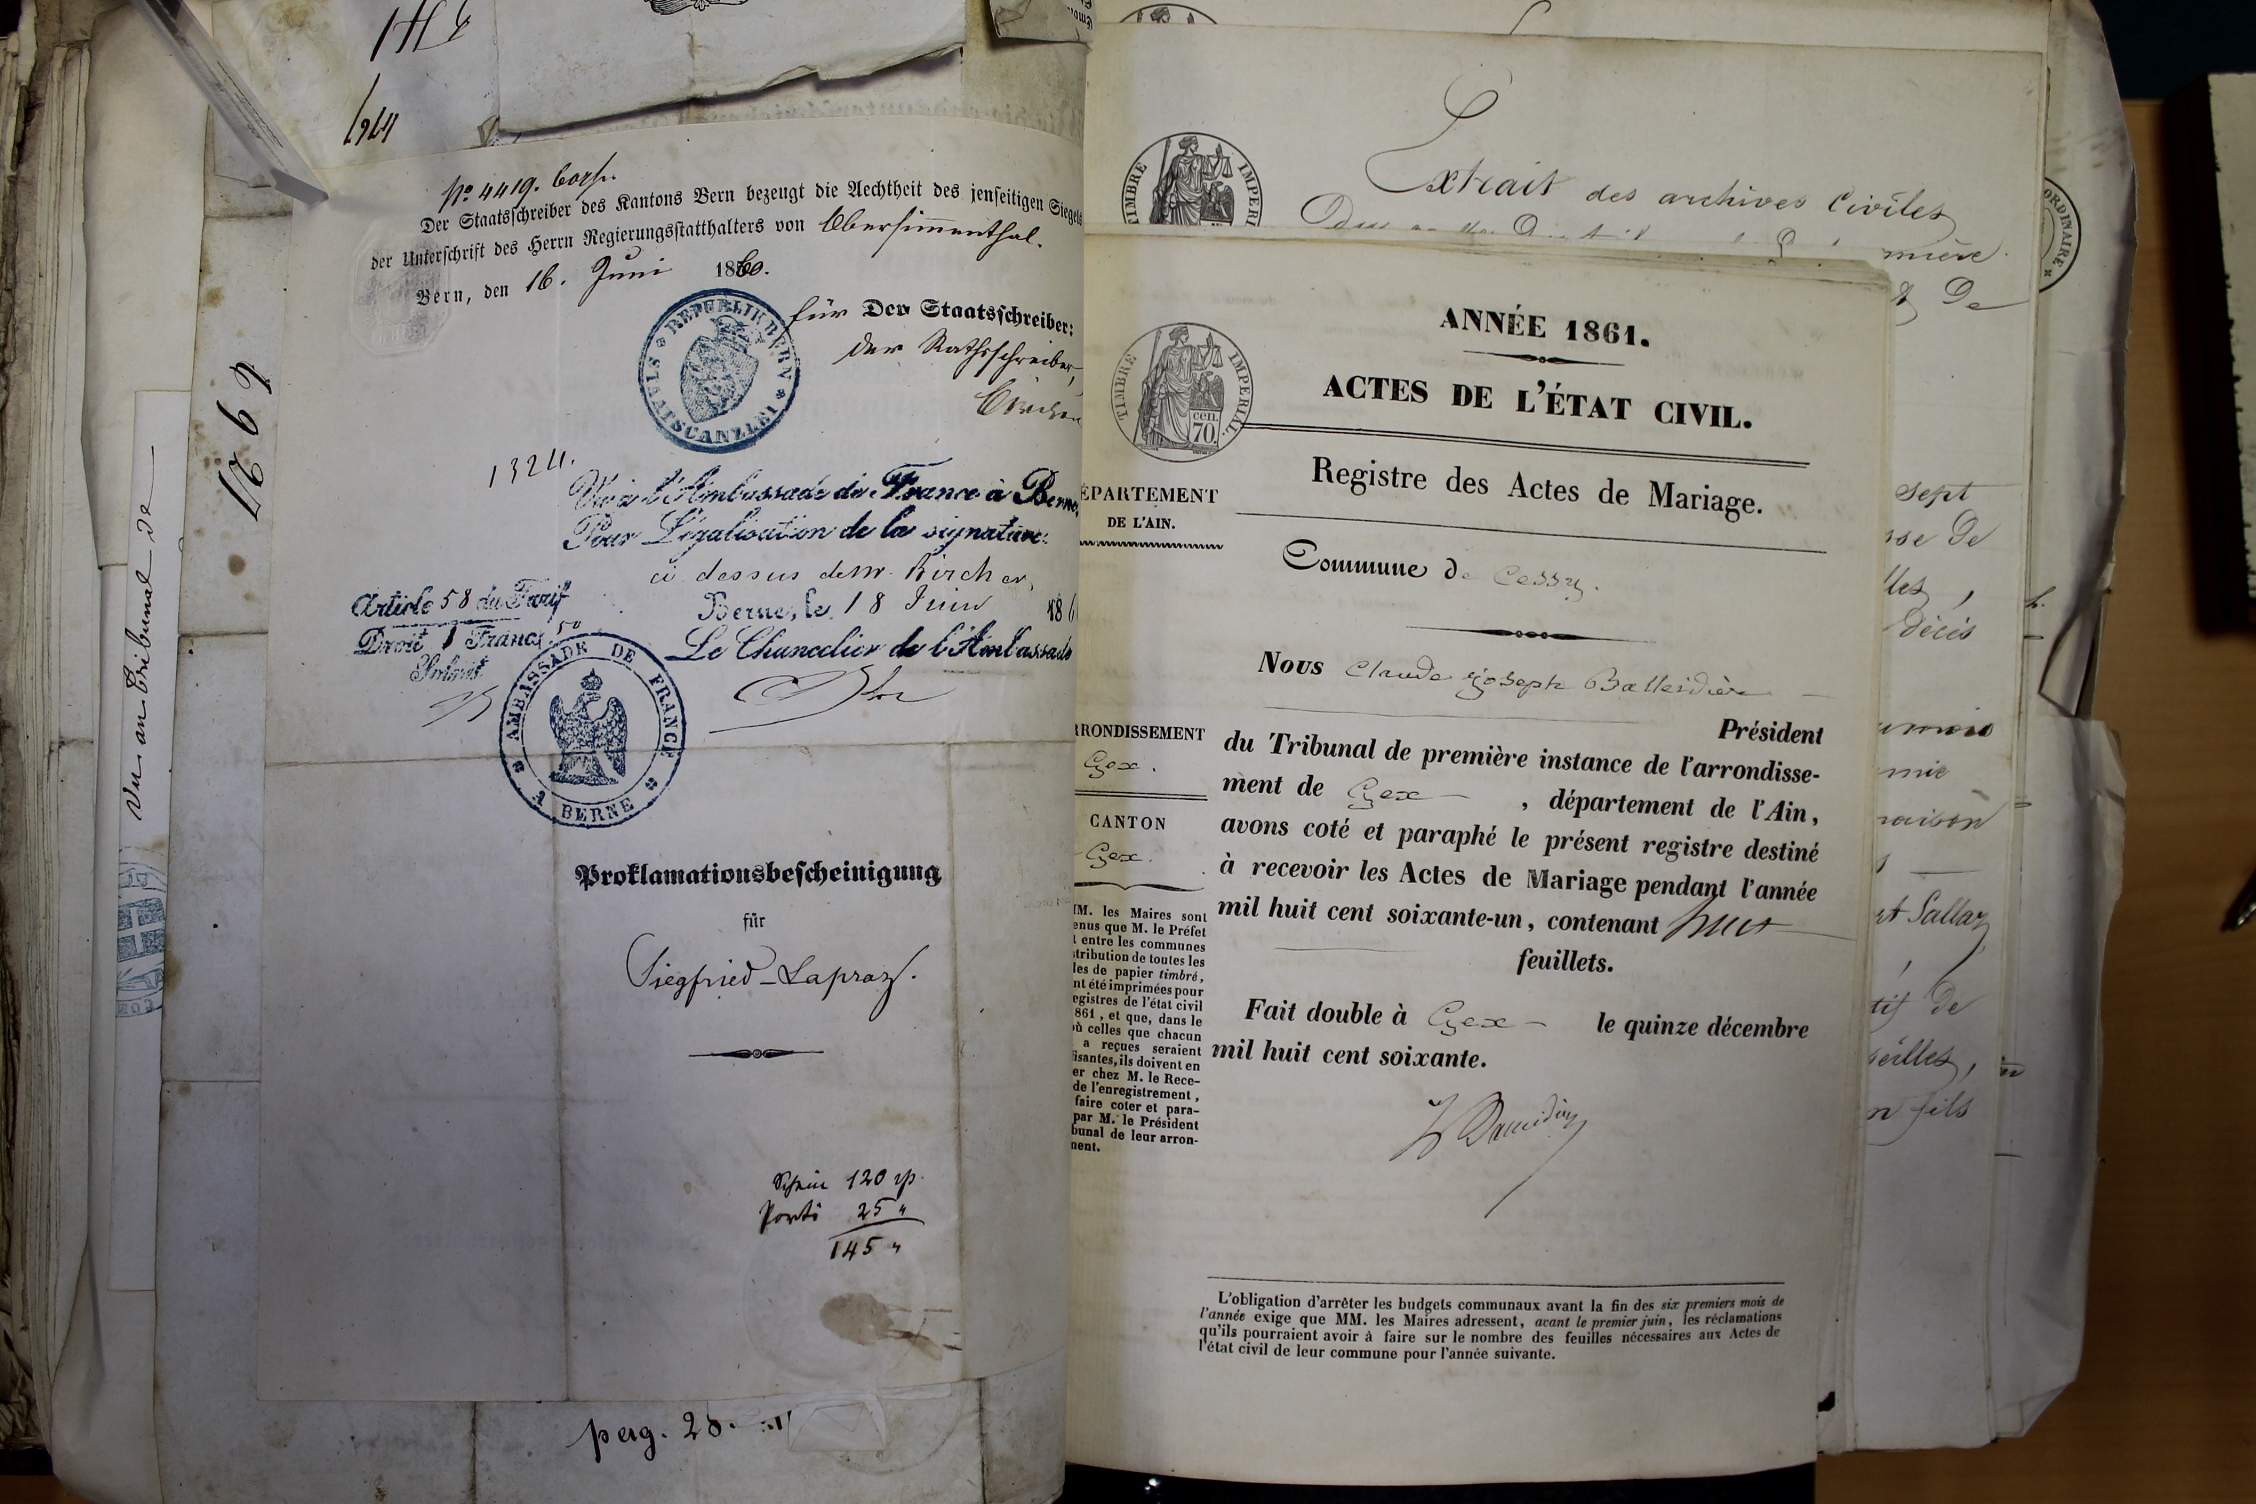 1964
No 4419.
Der Staatsschreiber des Kantons Bern bezeugt die Aechtheit des jenseitigen Siegels
der Unterschrift des Herrn Regierungsstatthalters von Obersimmenthal.
Bern, den 16. Juni 1860.
für Der Staatsschreiber:
der Rathsschreiber,
REPUBLIK BERN * STAATSCANZLEI *
1324.
Vu à l'Ambassade de France à Berne,
Pour Légalisation de la signature
ci dessus de Mr. Kircher,
Berne, le 18 Juin 186
Le Chancelier de l'Ambassade
Article 58 du Tarif
Droit 1 Francs 50
AMBASSADE DE FRANCE
A BERNE
Proklamationsbescheinigung
für
Siegfried-Lapraz.
Schein 120 rp.
Porto 25 "
145 "
perg. 28.
Vu au tribunal de
Extrait des archives Civiles
TIMBRE IMPERI
ORDINAIRE
mière
De
ANNÉE 1861.
ACTES DE L'ÉTAT CIVIL.
TIMBRE IMPERIAL
cen.
70.
Registre des Actes de Mariage.
ÉPARTEMENT
DE L'AIN.
Commune de Cessy.
Nous Claude Joseph Balleidier
Président
du Tribunal de première instance de l'arrondisse-
ment de Gex , département de l'Ain,
avons coté et paraphé le présent registre destiné
à recevoir les Actes de Mariage pendant l'année
mil huit cent soixante-un, contenant huit
feuillets.
Fait double à Gex le quinze décembre
mil huit cent soixante.
RRONDISSEMENT
Gex.
CANTON
Gex.
MM. les Maires sont
enus que M. le Préfet
t entre les communes
stribution de toutes les
les de papier timbré,
nt été imprimées pour
egistres de l'état civil
861, et que, dans le
où celles que chacun
a reçues seraient
fisantes, ils doivent en
er chez M. le Rece-
de l'enregistrement,
faire coter et para-
par M. le Président
bunal de leur arron-
ment.
L'obligation d'arrêter les budgets communaux avant la fin des six premiers mois de
l'année exige que MM. les Maires adressent, avant le premier juin, les réclamations
qu'ils pourraient avoir à faire sur le nombre des feuilles nécessaires aux Actes de
l'état civil de leur commune pour l'année suivante.
sept
sse De
lles,
décès
mie
raison
et Sallaz
tif De
seilles,
n fils